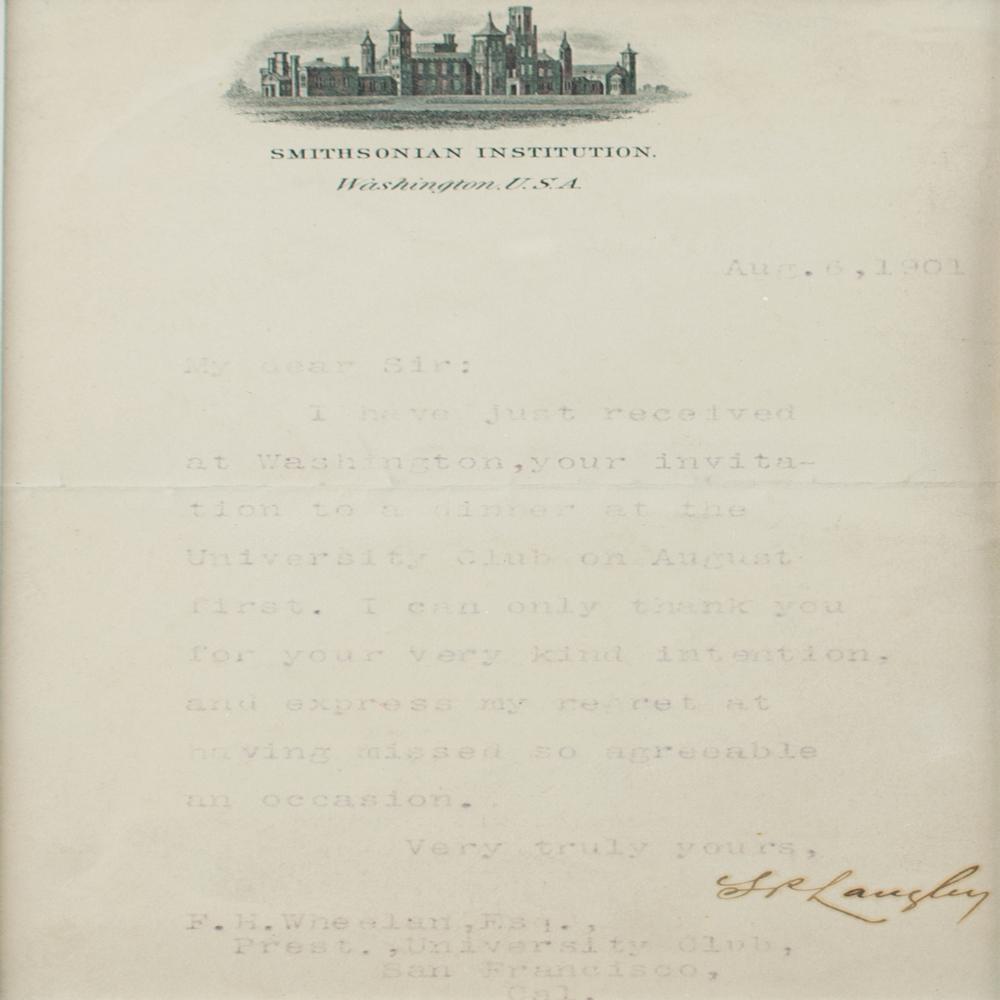 SMITHSONIAN INSTITUTION.
Washington, U.S.A.
Aug. 6, 1901
My dear Sir:
I have just received
at Washington, your invita-
tion to a dinner at the
University Club on August
first. I can only thank you
for your very kind intention,
and express my regret at
having missed so agreeable
an occasion.
Very truly yours,
S P Langley
F. H. Wheelan, Esq.,
Prest., University Club,
San Francisco,
Cal.